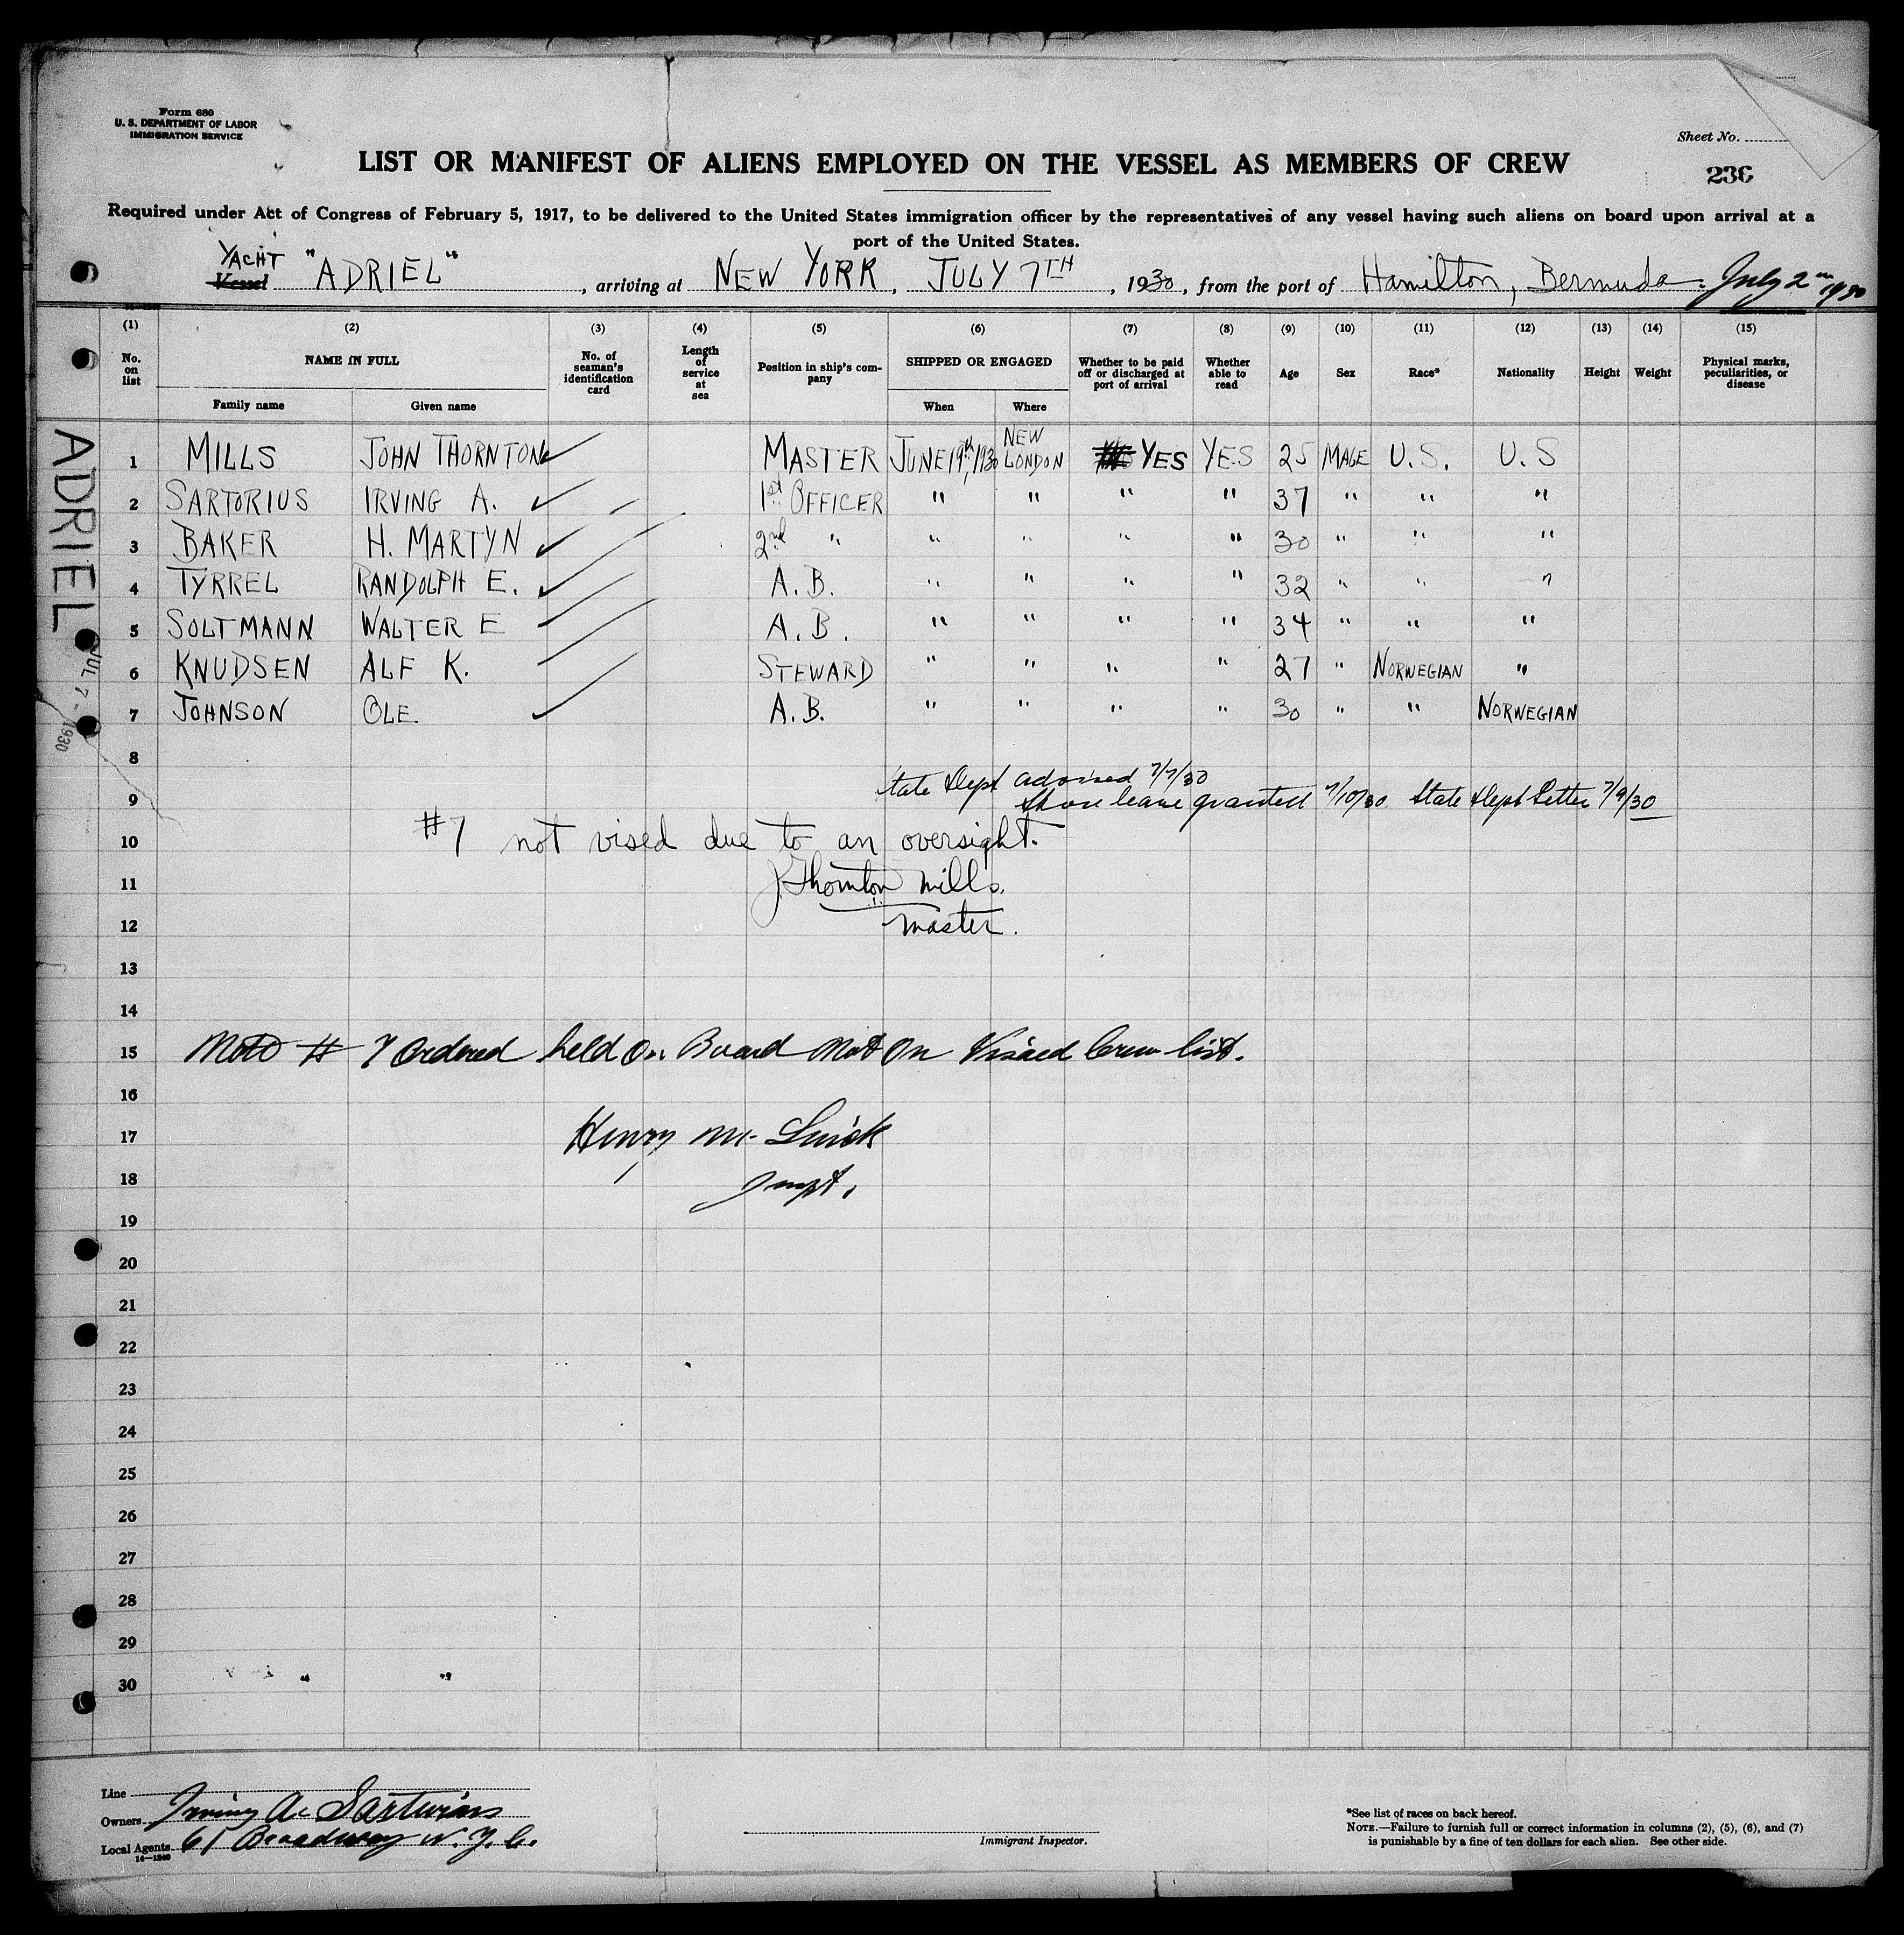 Form 680
U. S. DEPARTMENT OF LABOR
IMMIGRATION SERVICE
Sheet No.
236
LIST OR MANIFEST OF ALIENS EMPLOYED ON THE VESSEL AS MEMBERS OF CREW
Required under Act of Congress of February 5, 1917, to be delivered to the United States immigration officer by the representatives of any vessel having such aliens on board upon arrival at a
port of the United States.
YACHT
Vessel "ADRIEL", arriving at NEW YORK, JULY 7TH, 1930, from the port of Hamilton, Bermuda. July 2nd 1930
(1) (2) (3) (4) (5) (6) (7) (8) (9) (10) (11) (12) (13) (14) (15)
No. on list NAME IN FULL No. of seaman's identification card Length of service at sea Position in ship's company SHIPPED OR ENGAGED Whether to be paid off or discharged at port of arrival Whether able to read Age Sex Race* Nationality Height Weight Physical marks, peculiarities, or disease
Family name Given name When Where
1 MILLS JOHN THORNTON MASTER JUNE 19th, 1930 NEW LONDON YES YES 25 MALE U.S. U.S
2 SARTORIUS IRVING A. 1st OFFICER " " " " 37 " " "
3 BAKER H. MARTYN 2nd " " " " " 30 " " "
4 TYRREL RANDOLPH E. A.B. " " " " 32 " " "
5 SOLTMANN WALTER E A.B. " " " " 34 " " "
6 KNUDSEN ALF K. STEWARD " " " " 27 " NORWEGIAN "
7 JOHNSON OLE. A.B. " " " " 30 " " NORWEGIAN
8
tate Dept advised 7/7/30
9 Shore leave granted 7/10/30 State Dept Letter 7/9/30
10 #7 not vised due to an oversight.
11 J Thornton Mills.
12 Master.
13
14
15 Note # 7 Ordered held On Board Not On Visaed Crew list.
16
17 Henry
18 Inspt.
19
20
21
22
23
24
25
26
27
28
29
30
ADRIEL
JUL 7 - 1930
Line
Owners Irving A. Sartorius
Local Agents 61 Broadway N.Y.C.
14—1240
Immigrant Inspector.
*See list of races on back hereof.
NOTE.—Failure to furnish full or correct information in columns (2), (5), (6), and (7)
is punishable by a fine of ten dollars for each alien. See other side.